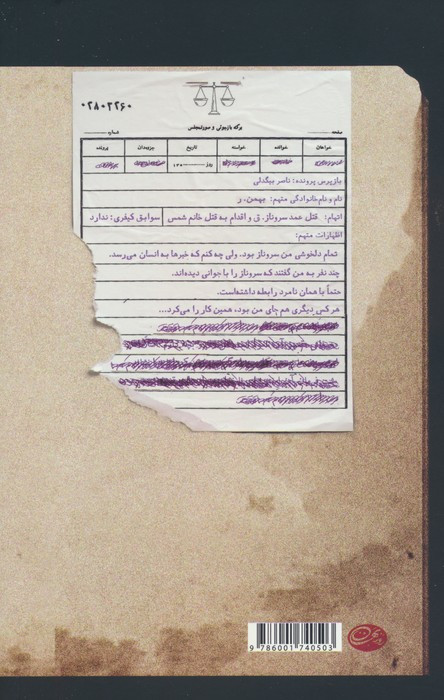 ۰۲۸۰۲۲۶۰
برگه بازجوئی و صورتمجلس
صفحه شماره
خواهان خوانده خواسته تاریخ پرونده
بازپرس پرونده: ناصر بیگدلی
نام و نام‌خانوادگی متهم: بهمن. ر
اتهام: قتل عمد سروناز. ق و اقدام به قتل خانم شمس سوابق کیفری: ندارد
اظهارات متهم:
تمام دلخوشی من سروناز بود. ولی چه کنم که خبرها به انسان می‌رسد.
چند نفر به من گفتند که سروناز را با جوانی دیده‌اند.
حتماً با همان نامرد رابطه داشته‌است.
هر کس دیگری هم جای من بود، همین کار را می‌کرد...
9 786001 740503